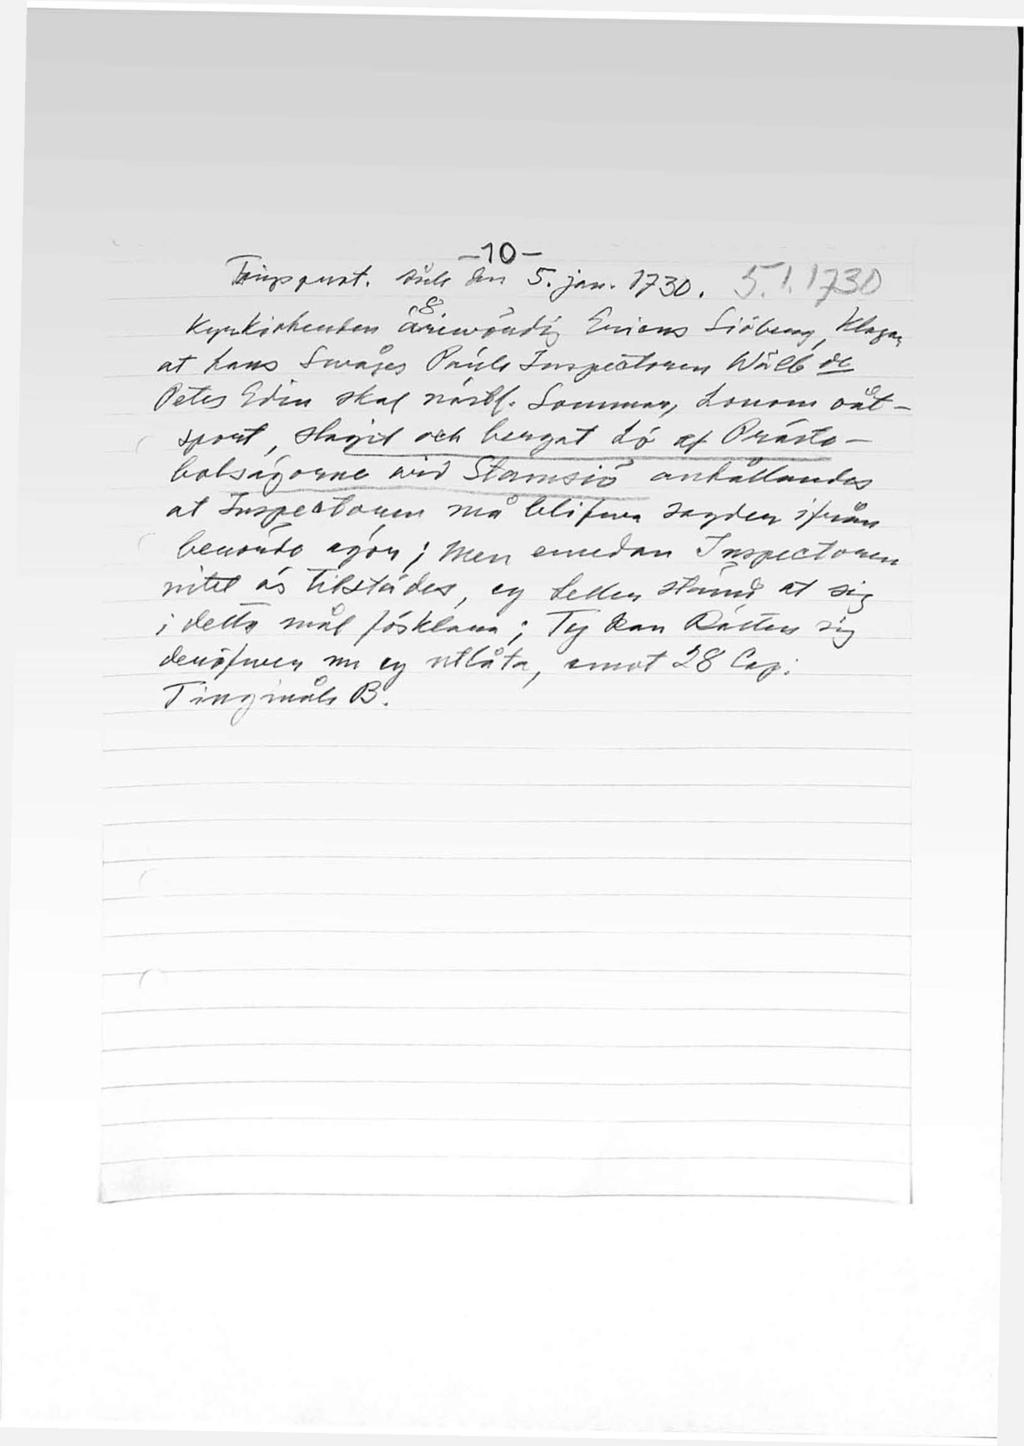 -10-
den 5. jan. 1730. 5.1.1730
Kyrkioherden ärewördig Ericus Siöberg, klagar
at hans Swåger Pauls Inspectoren Wälb
Peter Edin skal nästl. Sommar, honom oåt-
sport, slagit och bergat hö af Prästa-
bolsägorne wid Stamsiö anhållandes
at Inspectoren må blifwa sagder ifrån
berörde ägor; Men emedan Inspectoren
intet är tilstädes, ey heller stämd at sig
i detta mål förklara; Ty kan Rätten sig
deröfwer nu ey utlåta, emot 28 Cap:
Tingmåls B.